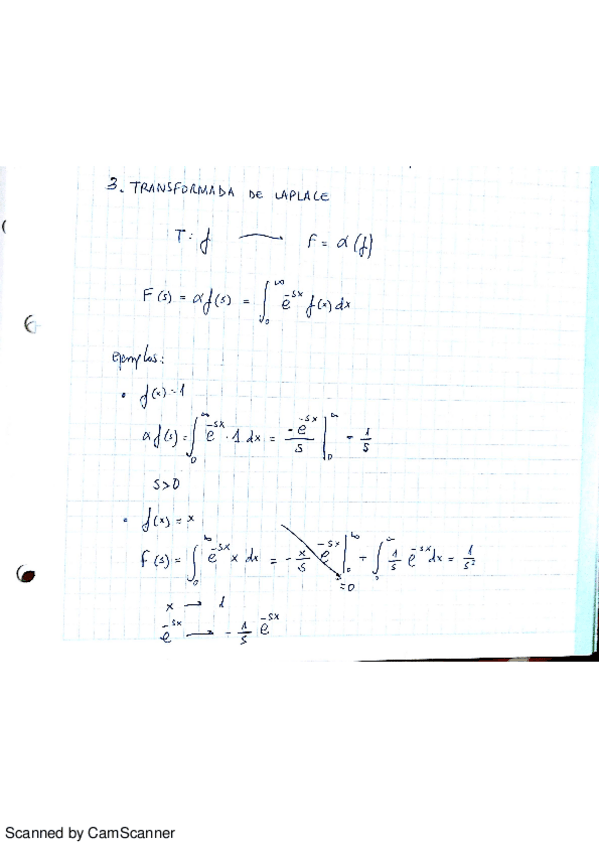 3. TRANSFORMADA DE LAPLACE
T: f ⟶ F = α(f)
F(s) = αf(s) = ∫₀^∞ e^{-sx} f(x) dx
ejemplos:
• f(x) = 1
αf(s) = ∫₀^∞ e^{-sx} · 1 dx = -e^{-sx}/s |₀^∞ = 1/s
s>0
• f(x) = x
F(s) = ∫₀^∞ e^{-sx} x dx = -x/s e^{-sx} |₀^∞ + ∫₀^∞ 1/s e^{-sx} dx = 1/s²
=0
x → 1
e^{-sx} → -1/s e^{-sx}
Scanned by CamScanner